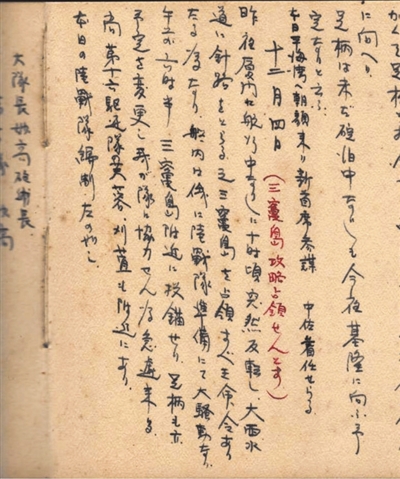 に向へり
足柄は未だ碇泊中なりしも今夜基隆に向ふ予
定なりと云ふ
本日 海 へ朝 来り新首席参謀 中佐着任せらる
十二月四日
（三竈島攻略占領せんとす）
昨夜厦門に航行中なりしに十時頃突然反転し大西水
道に針路をとる之三竈島を占領すべき命令あり
たる為なり 艦内は俄に陸戦隊準備にて大騒動なり
午前六時半 三竈島附近に投錨せり 足柄も亦
予定を変更し我が隊に協力せんが為急遽来る
尚第十六駆逐隊芙蓉刈萱も附近にあり
本日の陸戦隊編制左の如し
大隊長妙高砲術長